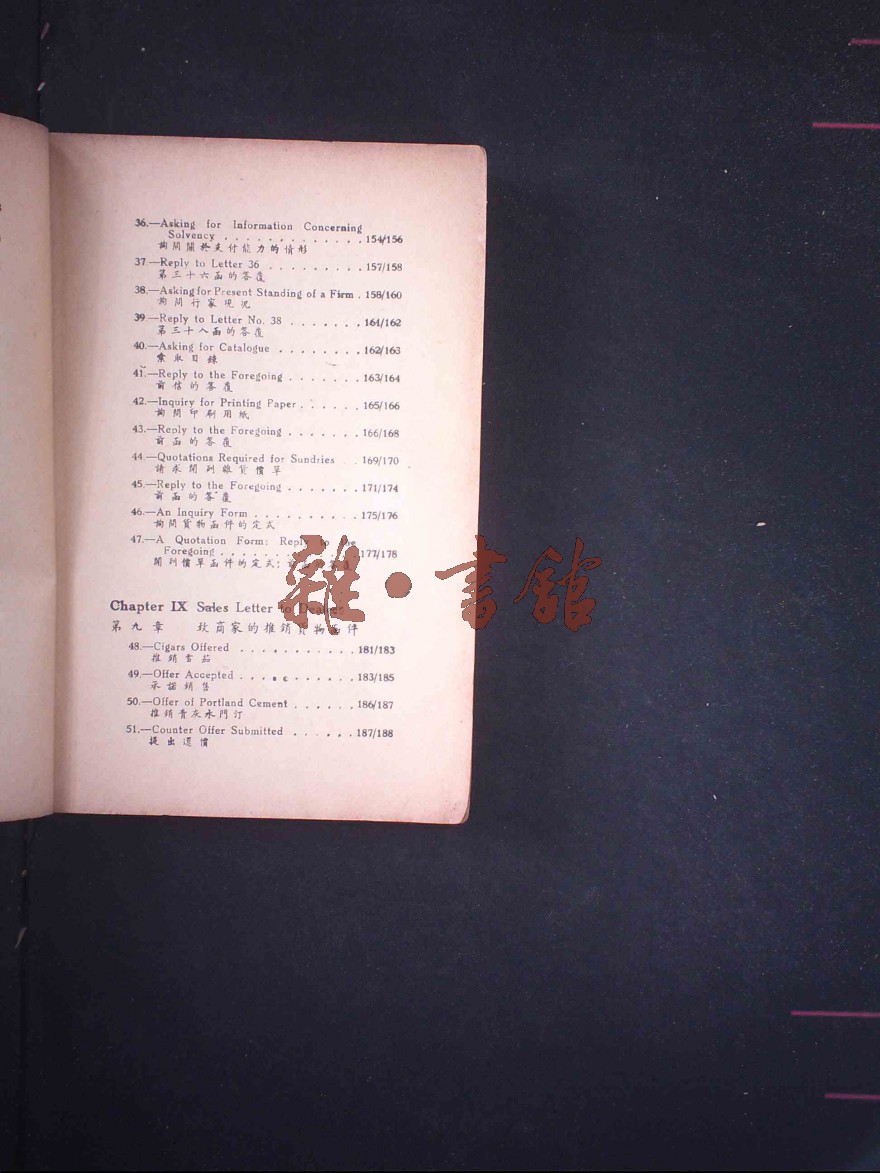 36.—Asking for Information Concerning
Solvency . . . . . . . . . . . . . 154/156
詢問關於支付能力的情形
37.—Reply to Letter 36 . . . . . . . . . 157/158
第三十六函的答覆
38.—Asking for Present Standing of a Firm . 158/160
詢問行家現況
39.—Reply to Letter No. 38 . . . . . . . 161/162
第三十八函的答覆
40.—Asking for Catalogue . . . . . . . . 162/163
索取目錄
41.—Reply to the Foregoing . . . . . . . 163/164
前信的答覆
42.—Inquiry for Printing Paper . . . . . . 165/166
詢問印刷用紙
43.—Reply to the Foregoing . . . . . . . 166/168
前函的答覆
44.—Quotations Required for Sundries . . 169/170
請求開列雜貨價單
45.—Reply to the Foregoing . . . . . . . 171/174
前函的答覆
46.—An Inquiry Form . . . . . . . . . . 175/176
詢問貨物函件的定式
47.—A Quotation Form: Reply to the
Foregoing . . . . . . . . . . . . . 177/178
開列價單函件的定式:
雜·書館
Chapter IX Sales Letter to
第九章 致商家的推銷貨物函件
48.—Cigars Offered . . . . . . . . . . . 181/183
推銷雪茄
49.—Offer Accepted . . . . . . . . . . . 183/185
承諾銷售
50.—Offer of Portland Cement . . . . . . 186/187
推銷青灰水門汀
51.—Counter Offer Submitted . . . . . . 187/188
提出還價